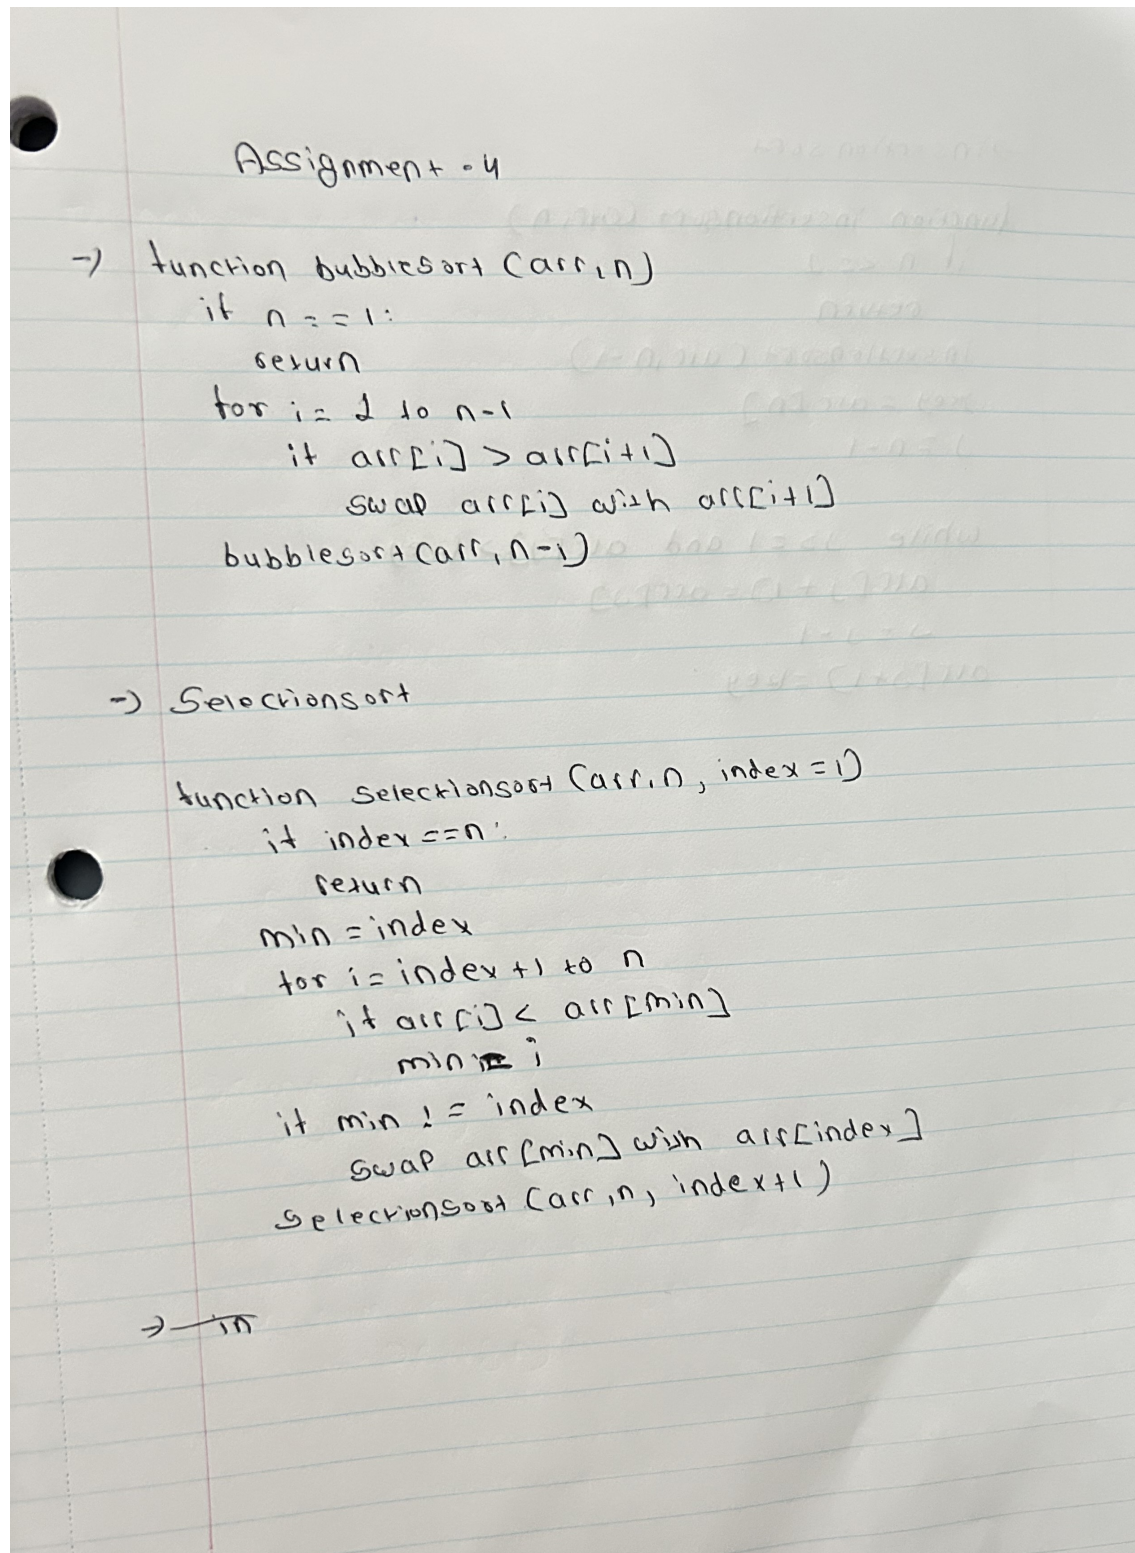 Assignment - 4
→ function bubblesort (arr, n)
if n == 1:
return
for i = 1 to n-1
if arr[i] > arr[i+1]
swap arr[i] with arr[i+1]
bubblesort (arr, n-1)
→ Selectionsort
function selectionsort (arr, n, index = 1)
if index == n:
return
min = index
for i = index + 1 to n
if arr[i] < arr[min]
min = i
if min != index
swap arr[min] with arr[index]
selectionsort (arr, n, index+1)
→ in